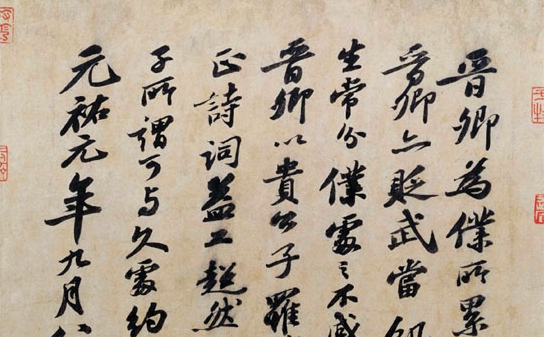 晋卿為僕所累
晋卿亦貶武當
生常分僕處之不戚
晋卿以貴公子罹
正詩詞益工超然
子所謂可与久處約
元祐元年九月八